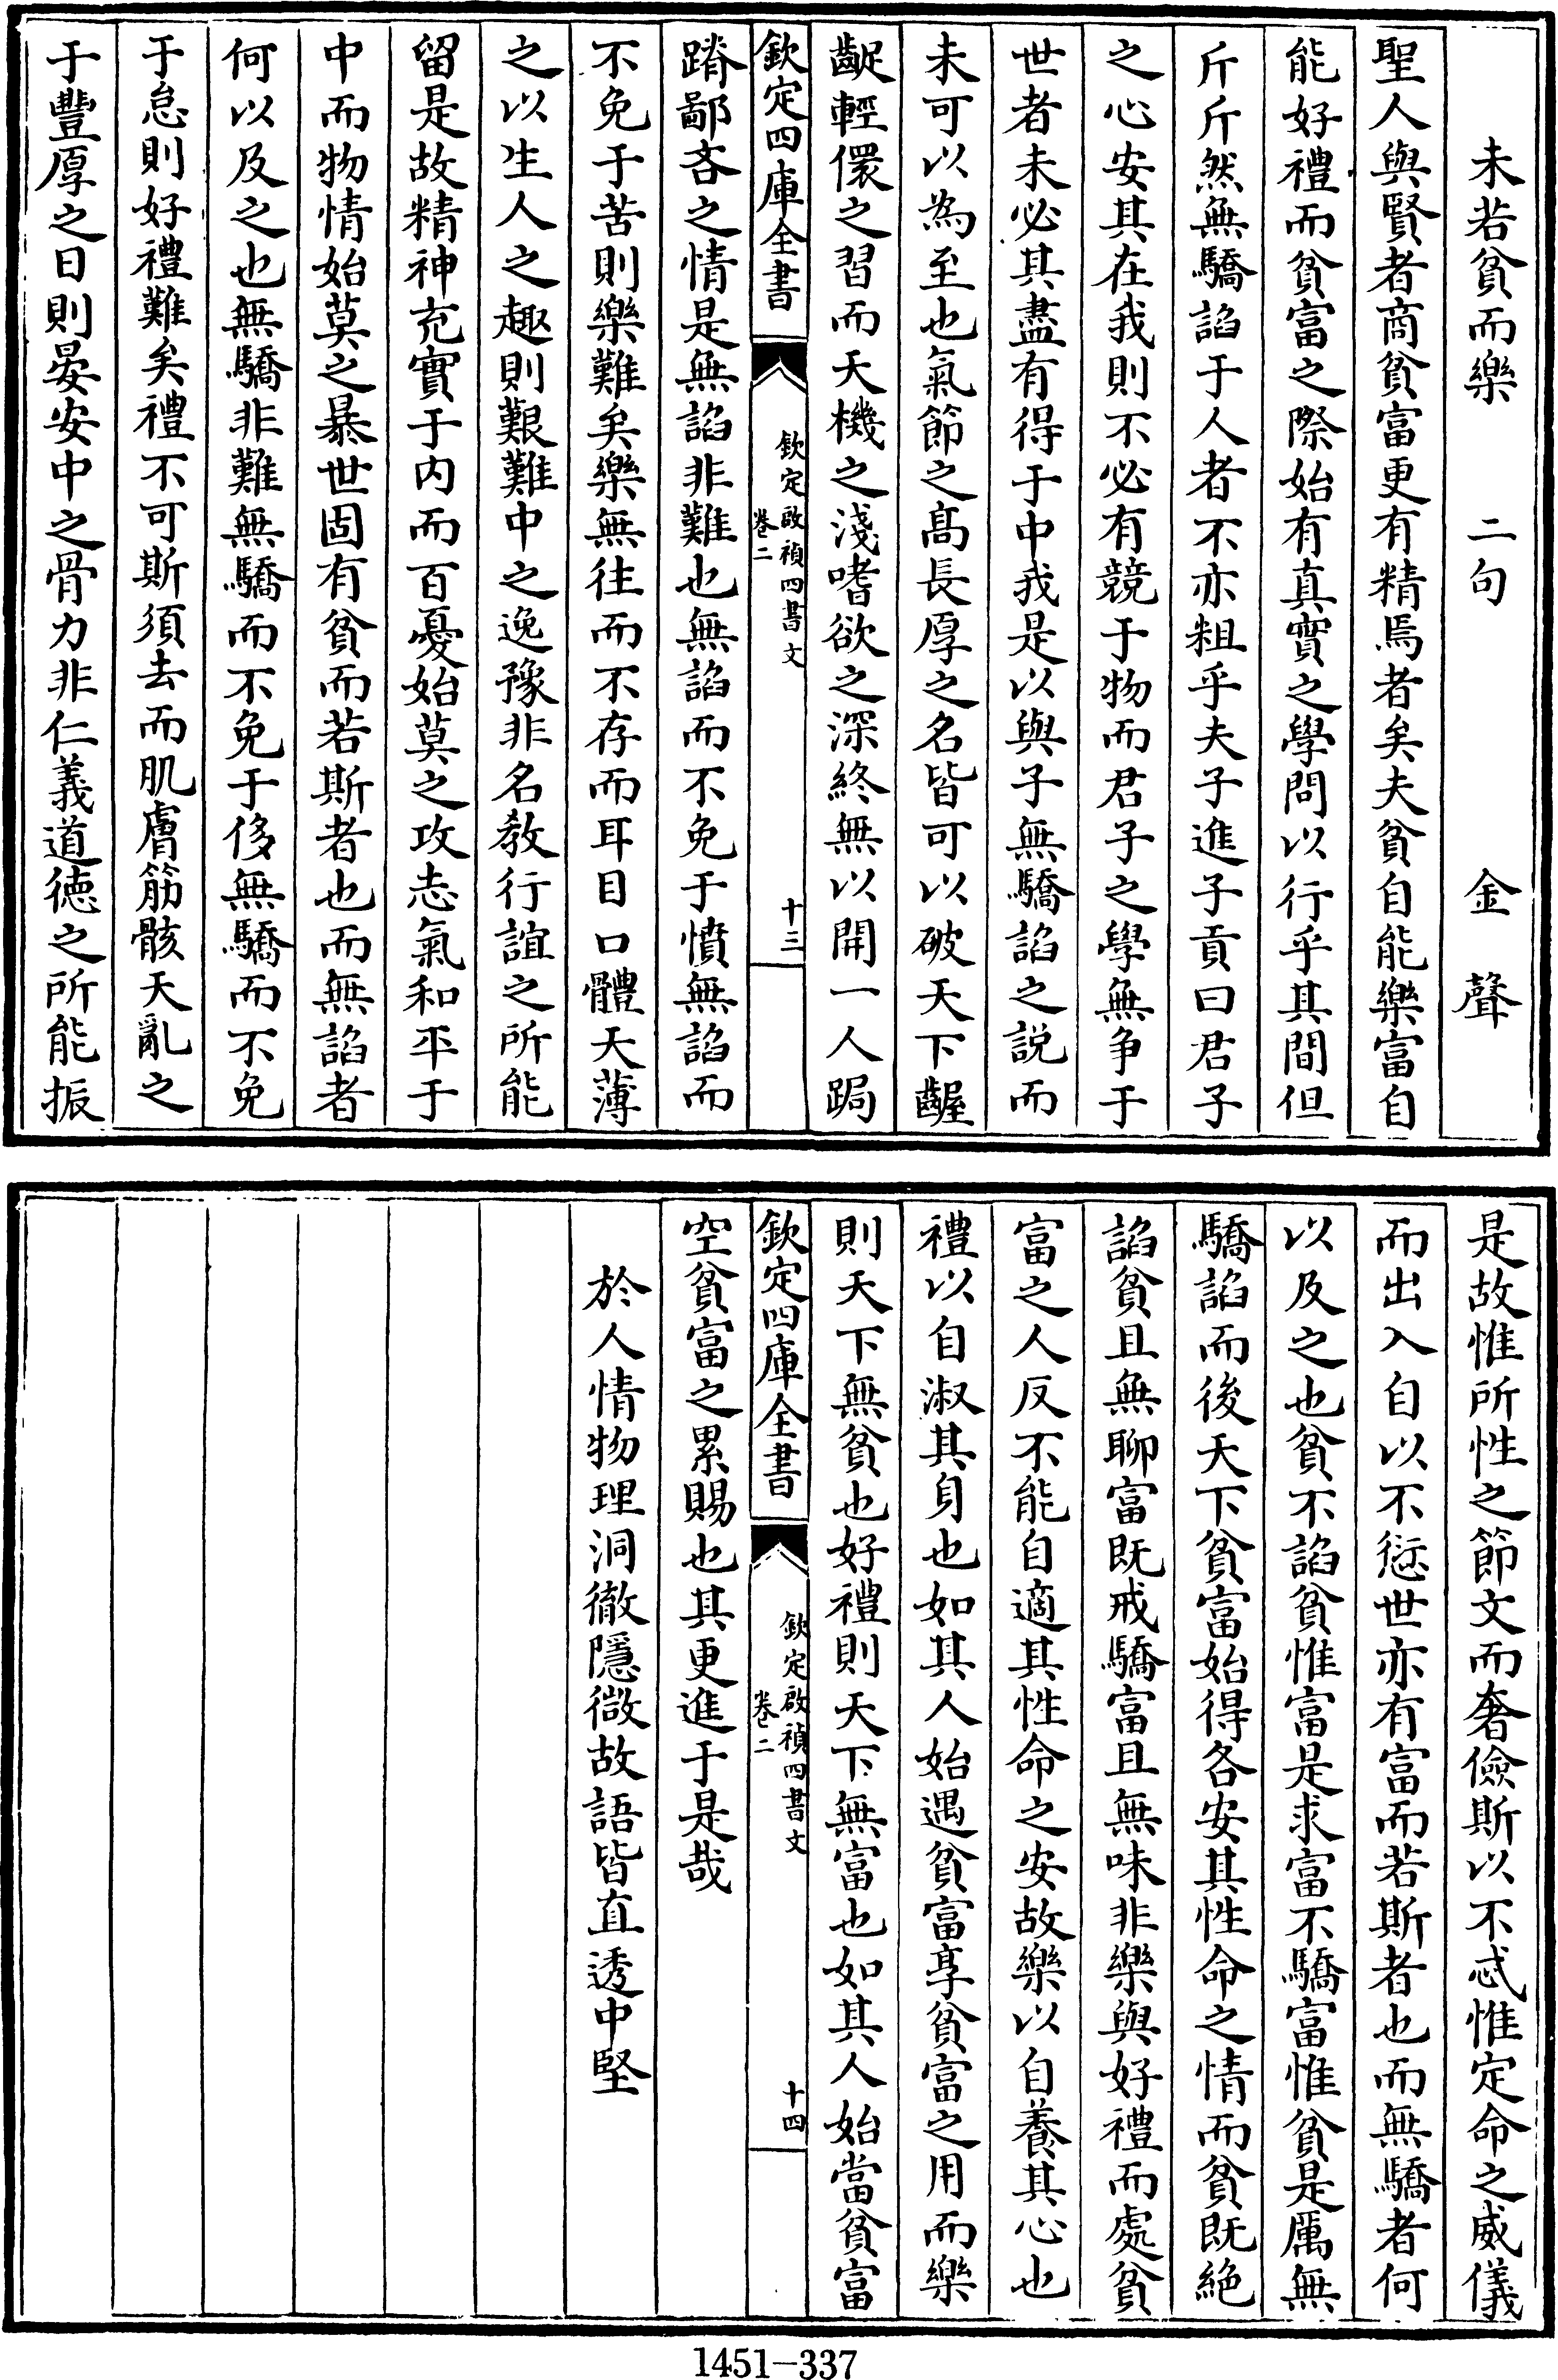 未若貧而樂　二句　金聲
聖人與賢者商貧富更有精焉者矣夫貧自能樂富自
能好禮而貧富之際始有真實之學問以行乎其間但
斤斤然無驕諂于人者不亦粗乎夫子進子貢曰君子
之心安其在我則不必有競于物而君子之學無争于
世者未必其盡有得于中我是以與子無驕諂之說而
未可以為至也氣節之髙長厚之名皆可以破天下齷
齪輕儇之習而天機之淺嗜欲之深終無以開一人跼
欽定四庫全書
欽定啟禎四書文
卷二
十三
蹐鄙吝之情是無諂非難也無諂而不免于憤無諂而
不免于苦則樂難矣樂無往而不存而耳目口體天薄
之以生人之趣則艱難中之逸豫非名教行誼之所能
留是故精神充實于内而百憂始莫之攻志氣和平于
中而物情始莫之暴世固有貧而若斯者也而無諂者
何以及之也無驕非難無驕而不免于侈無驕而不免
于怠則好禮難矣禮不可斯須去而肌膚筋骸天亂之
于豐厚之日則晏安中之骨力非仁義道德之所能振
是故惟所性之節文而奢儉斯以不忒惟定命之威儀
而出入自以不愆世亦有富而若斯者也而無驕者何
以及之也貧不諂貧惟富是求富不驕富惟貧是厲無
驕諂而後天下貧富始得各安其性命之情而貧既絶
諂貧且無聊富既戒驕富且無味非樂與好禮而處貧
富之人反不能自適其性命之安故樂以自養其心也
禮以自淑其身也如其人始遇貧富享貧富之用而樂
則天下無貧也好禮則天下無富也如其人始當貧富
欽定四庫全書
欽定啟禎四書文
卷二
十四
空貧富之累賜也其更進于是哉
於人情物理洞徹隱微故語皆直透中堅
1451-337